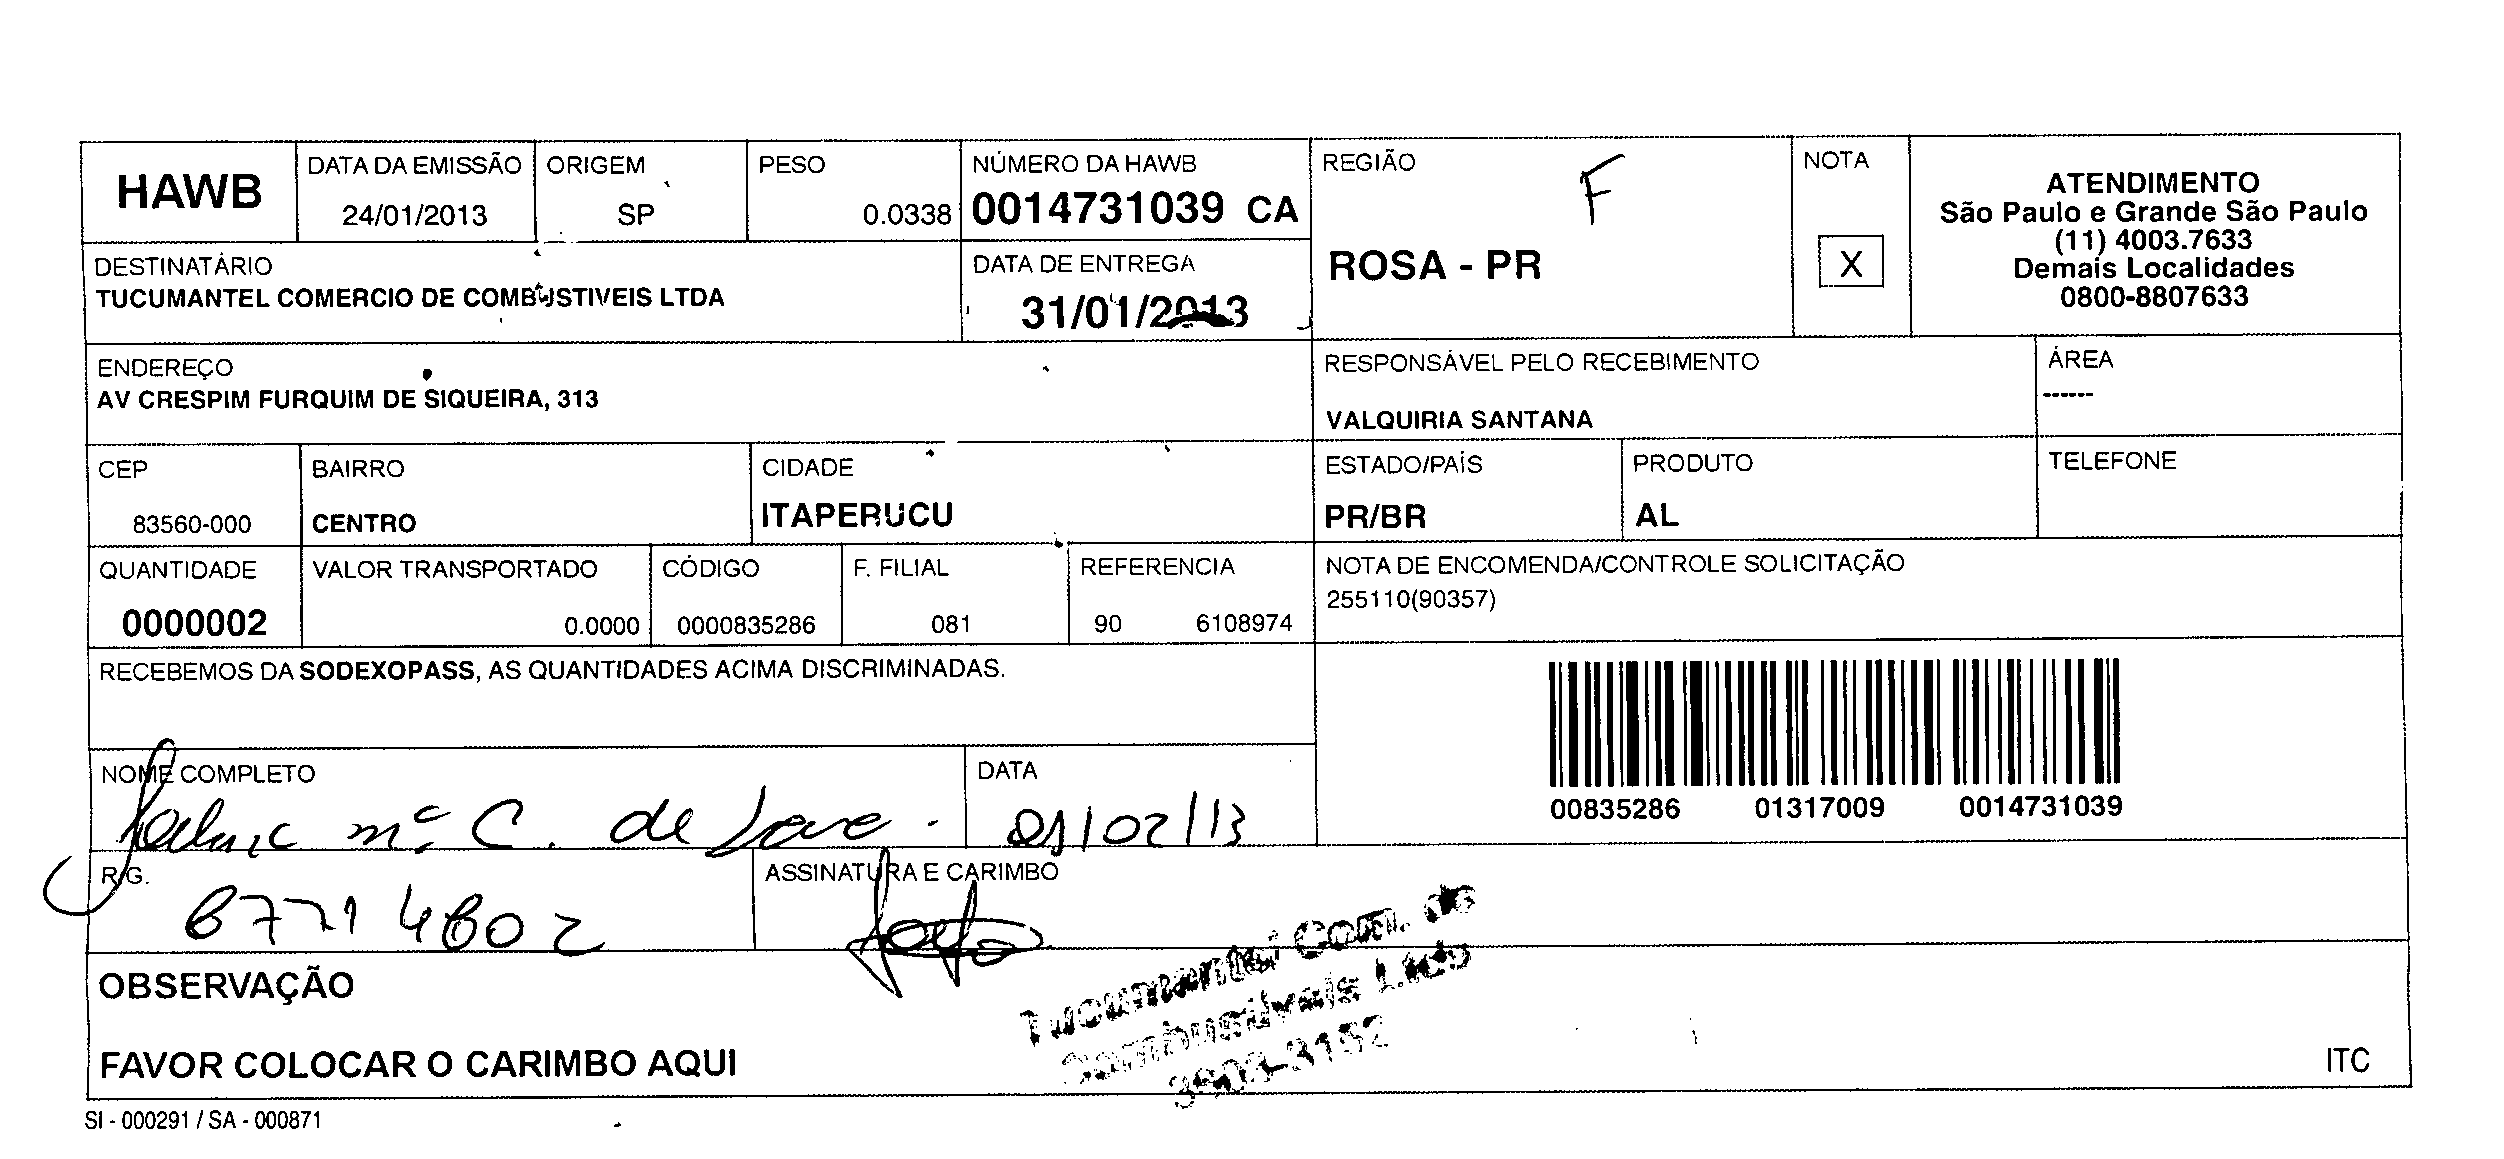 HAWB
DATA DA EMISSÃO
24/01/2013
ORIGEM
SP
PESO
0.0338
NÚMERO DA HAWB
0014731039 CA
REGIÃO
F
ROSA - PR
NOTA
X
ATENDIMENTO
São Paulo e Grande São Paulo
(11) 4003.7633
Demais Localidades
0800-8807633
DESTINATÁRIO
TUCUMANTEL COMERCIO DE COMBUSTIVEIS LTDA
DATA DE ENTREGA
31/01/2013
ENDEREÇO
AV CRESPIM FURQUIM DE SIQUEIRA, 313
RESPONSÁVEL PELO RECEBIMENTO
VALQUIRIA SANTANA
ÁREA
------
CEP
83560-000
BAIRRO
CENTRO
CIDADE
ITAPERUCU
ESTADO/PAÍS
PR/BR
PRODUTO
AL
TELEFONE
QUANTIDADE
0000002
VALOR TRANSPORTADO
0.0000
CÓDIGO
0000835286
F. FILIAL
081
REFERENCIA
90 6108974
NOTA DE ENCOMENDA/CONTROLE SOLICITAÇÃO
255110(90357)
RECEBEMOS DA SODEXOPASS, AS QUANTIDADES ACIMA DISCRIMINADAS.
00835286 01317009 0014731039
NOME COMPLETO
mª C. de
DATA
01/02/13
R.G.
87714802
ASSINATURA E CARIMBO
Tucumantel Com. de
Combustíveis Ltda
OBSERVAÇÃO
FAVOR COLOCAR O CARIMBO AQUI
ITC
SI - 000291 / SA - 000871